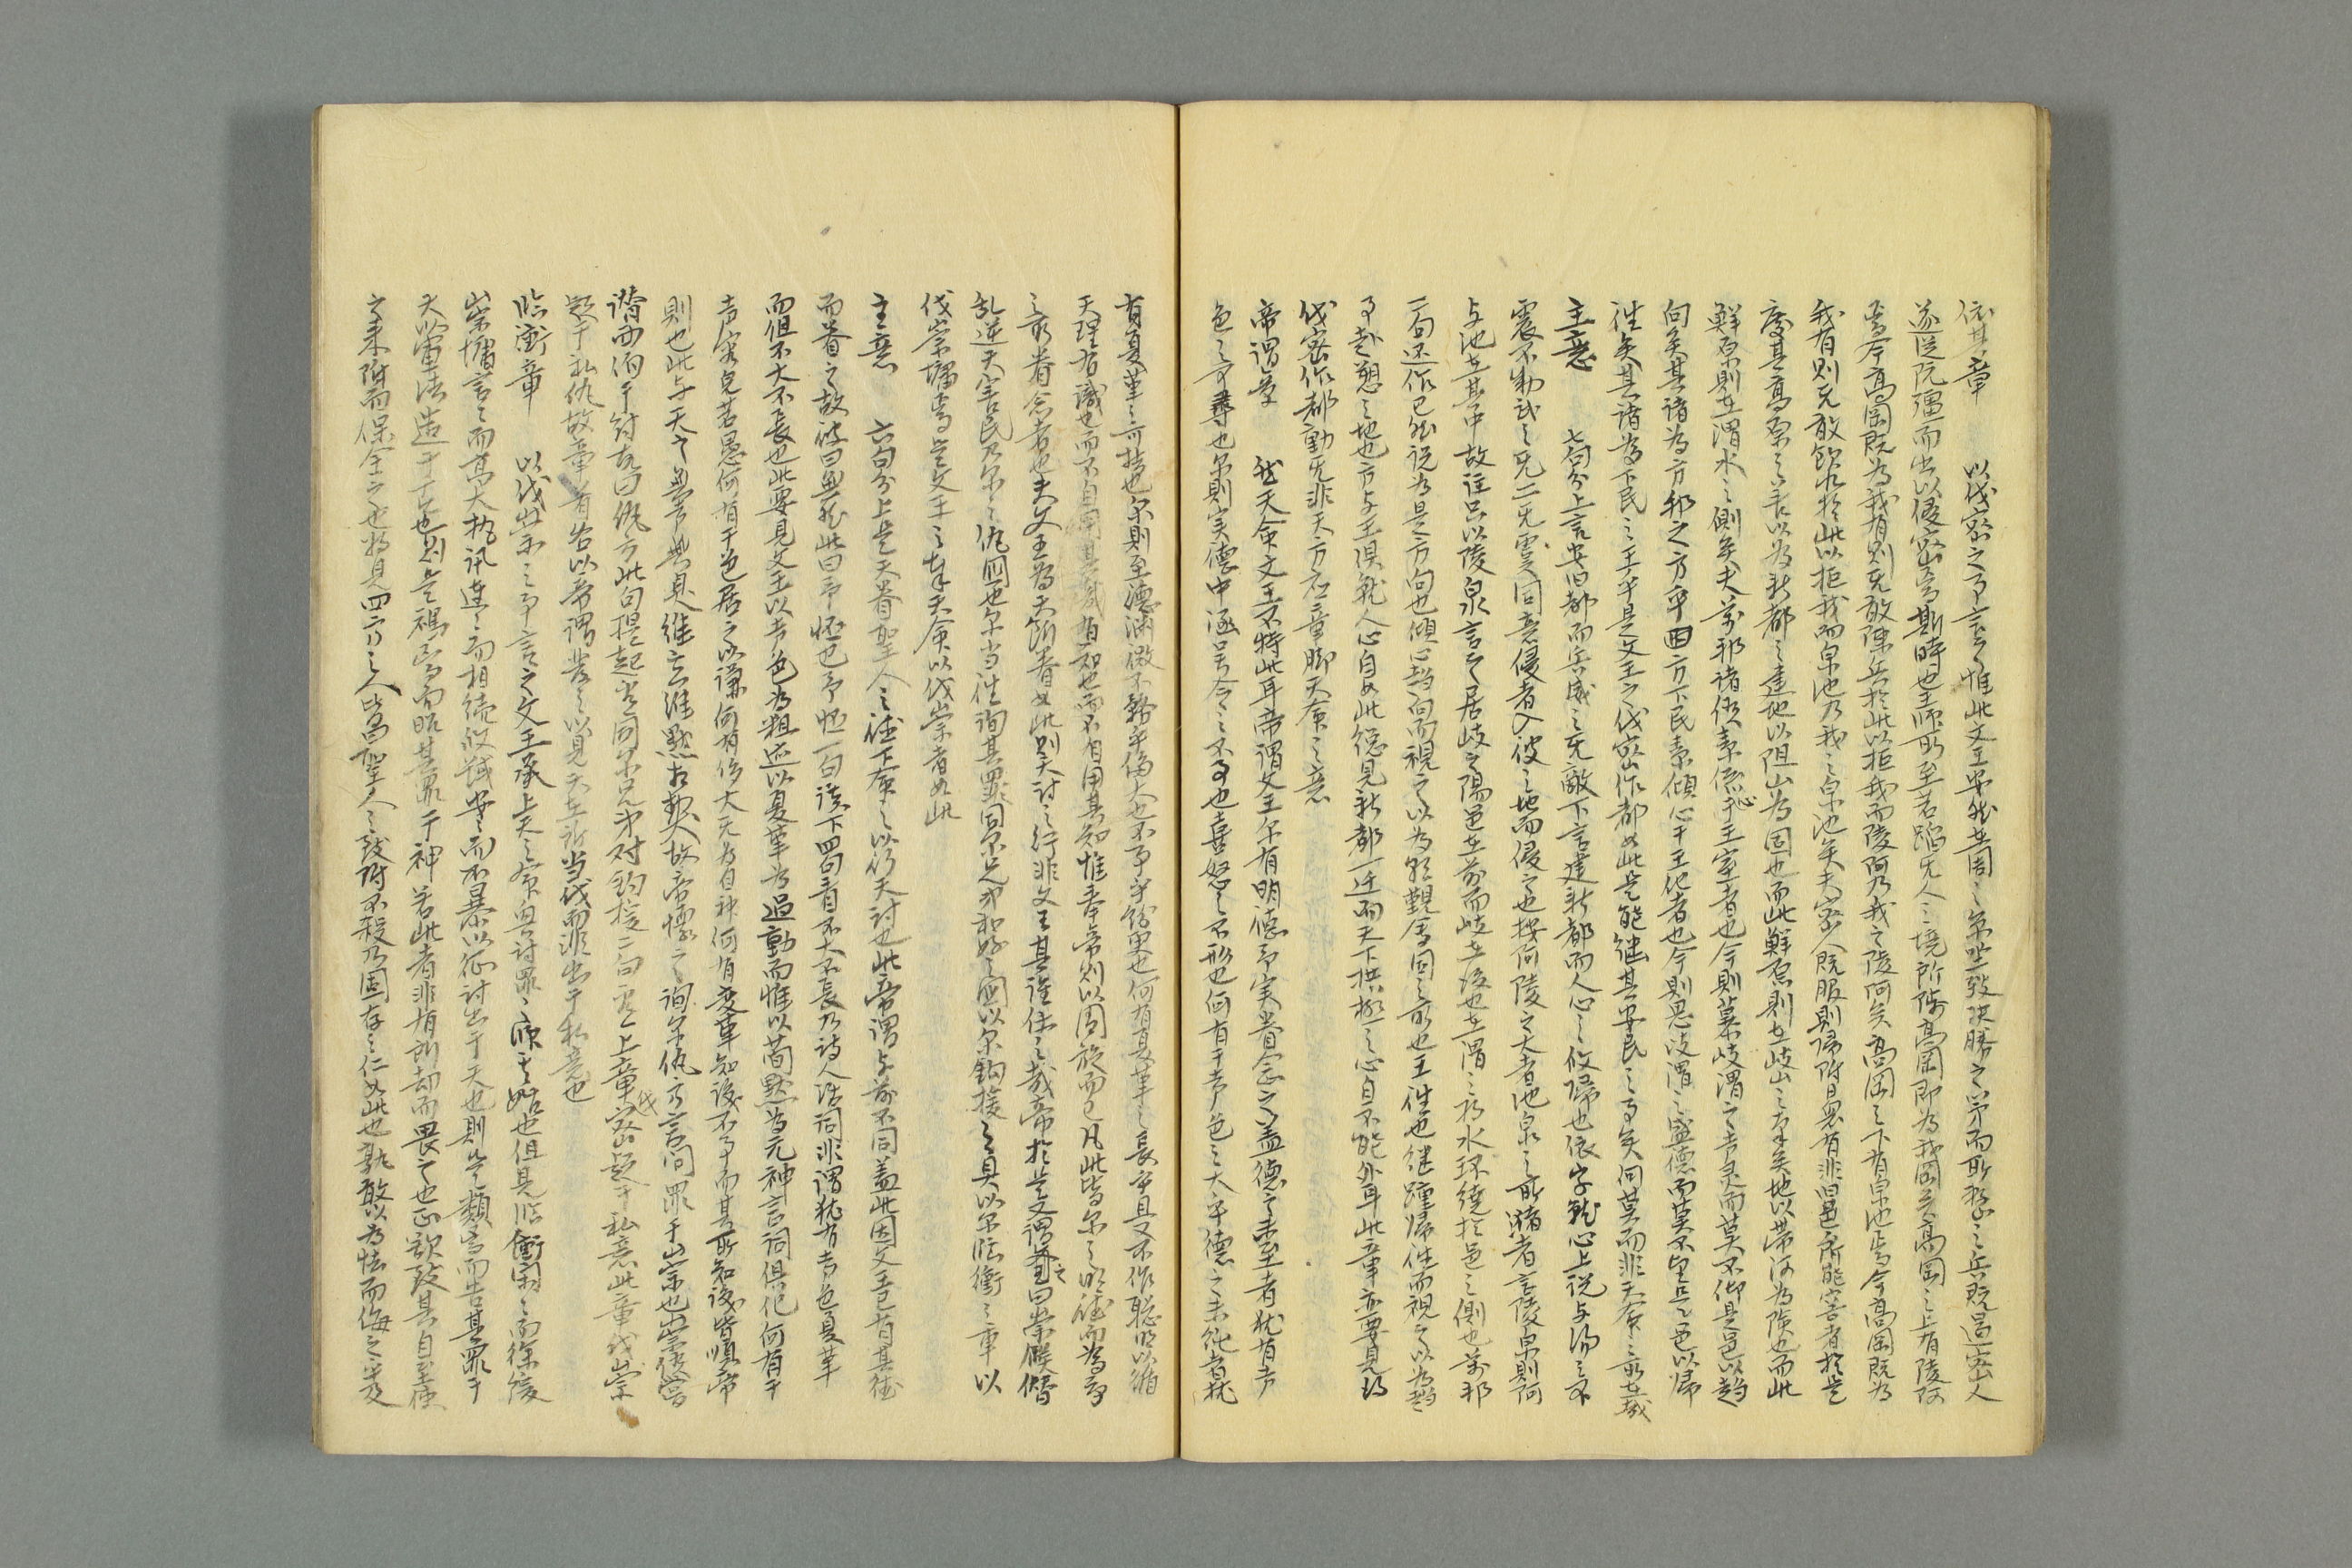 依其章　以伐密之事言之惟此文王安然在周之京坐致決勝之以所整之兵既遏密人
遂從阮疆而出以侵密焉斯時也王師所至若蹈无人之境所陟高岡即為我岡矣高岡之上有陵阿
焉今高岡既為我有則无敢陳兵於此以拒我而陵阿乃我之陵阿矣高岡之下有泉池焉今高岡既為
我有則无敢飲水於此以拒我而泉池乃我之泉池矣夫密人既服則歸附日眾有非旧邑所能容者於是
度其高原之善以為新都之建地以阻山為固也而此鮮原則在岐山之矣地以帶河為險也而此
鮮原則在渭水之側矣夫萬邦諸侯素係心于王室者也今則慕岐渭之声灵而莫不仰是邑以趨
向矣其諸為方邦之方乎四方下民素傾心于王化者也今則思岐渭之盛德而莫不望是邑以歸
往矣其諸為下民之王乎是文王之伐密作都如此是能継其安民之事矣何莫而非天命之所在哉
主意　七句分上言安旧都而兵威之无敵下言建新都而人心之攸歸也依字就心上説与湯之不
震不動武之无二无虞同意侵者入彼之地而侵之也按阿陵之大者池泉之所瀦者言陵泉則阿
与池在其中故註只以陵泉言之居岐之陽邑在前而岐在後也在渭之将水环繞於邑之側也萬邦
二句还作已然説為是方向也傾心趨向而視之以為朝覲會同之所也王往也継踵歸往而視之以為趨
事赴愬之地也方与王俱就人心自如此総見新都一迁而天下拱極之心自不能外耳此章亦要見得
伐密作都動无非天方應章脚天命之意
帝謂章　然天命文王不特此耳帝謂文王尔有明德予実眷念之盖德之未至者猶有声
色之可尋也尔則実德中涵号令之不事也喜怒之不形也何有于声色之大乎德之未純者猶
有夏革之可指也尔則至德淵微不務乎侈大也不事乎紛更也何有夏革之長乎且又不作聡明以循
天理有識也而不自用其識有知也而不自用其知惟奉帝則以周旋而已凡此皆尔之明德而為予
之所眷念者也夫文王為天所眷如此則天討之行非文王其誰任之哉帝於是又謂之曰崇侯僭
乱逆天害民乃尔之仇國也尔当往詢其罪同尔兄弟和好之國以尔鈎援之具以尔臨衝之車以
伐崇墉焉是文王之奉天命以伐崇者如此
主意　六句分上是天眷聖人之德下命之以行天討也此帝謂与前不同盖此因文王已有其德
而眷之故彼曰無然此曰予懷已予懷一句読下四句看不大不長乃詩人活詞非謂猶有声色夏革
而但不大不長也此要見文王以声色為粗迹以夏革為過動而惟以簡黙為元神言詞俱化何有于
声容皃若愚何有于色居之以謙何有侈大无為自神何有变革知後不事而其所知後皆順帝
則也此与天之無声無臭維玄維黙相契故帝懷之詢尔仇方言問罪于崇也崇侯嘗
譖西伯于紂故曰仇方此句提起當同尔兄弟对鈎援二句看上章伐密疑于私意此章伐崇
疑于私仇故章首各以帝謂發之以見天在所当伐而非出于私意也
臨衝章　以伐崇之事言之文王承上天之命興討罪之師其始也但見臨衝閑之而徐緩
崇墉言之而高大執訊連之而相続攸馘安之而不暴以征討出于天也則是類焉而告其罪于
天以軍法造于下也則是禡焉而昭其罪于神若此者非有所却而畏之也正欲致其自至使
之来附而保全之也将見四方之人皆曰聖人之致附不殺乃固存之仁如此也孰敢以為怯而侮之乎及